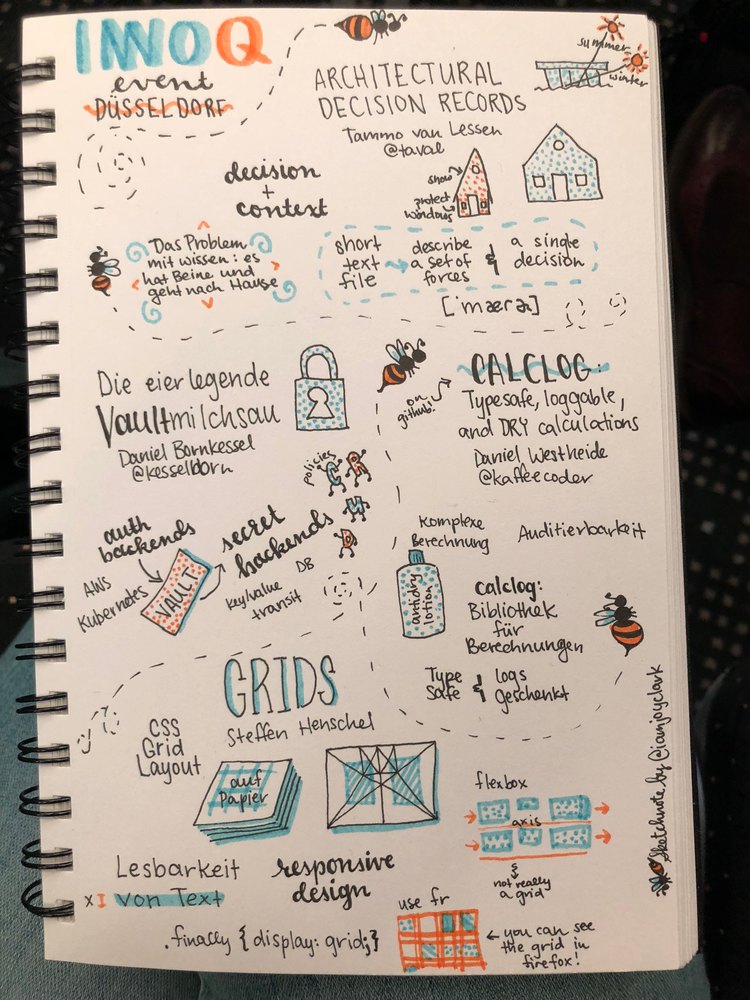 INNOQ
event
DÜSSELDORF
ARCHITECTURAL
DECISION RECORDS
Tammo van Lessen
@taval
summer
winter
decision
+
context
snow
protect
windows
Das Problem
mit wissen: es
hat Beine und
geht nach Hause
short
text
file
describe
a set of
forces
&
a single
decision
['mærə]
Die eierlegende
Vaultmilchsau
Daniel Bornkessel
@kesselborn
on
github!
CALCLOG:
Typesafe, loggable,
and DRY calculations
Daniel Westheide
@kaffeecoder
policies
C R
U
D
auth
backends
AWS
Kubernetes
VAULT
secret
backends
key/value
transit
DB
Komplexe
Berechnung
Auditierbarkeit
antidry
lotion
calclog:
Bibliothek
für
Berechnungen
Type
Safe
&
logs
geschenkt
GRIDS
Steffen Henschel
CSS
Grid
Layout
auf
Papier
flexbox
axis
not really
a grid
Lesbarkeit
x I von Text
responsive
design
use fr
.finally {display: grid;}
← you can see
the grid in
firefox!
Sketchnote by @iamjoyclark